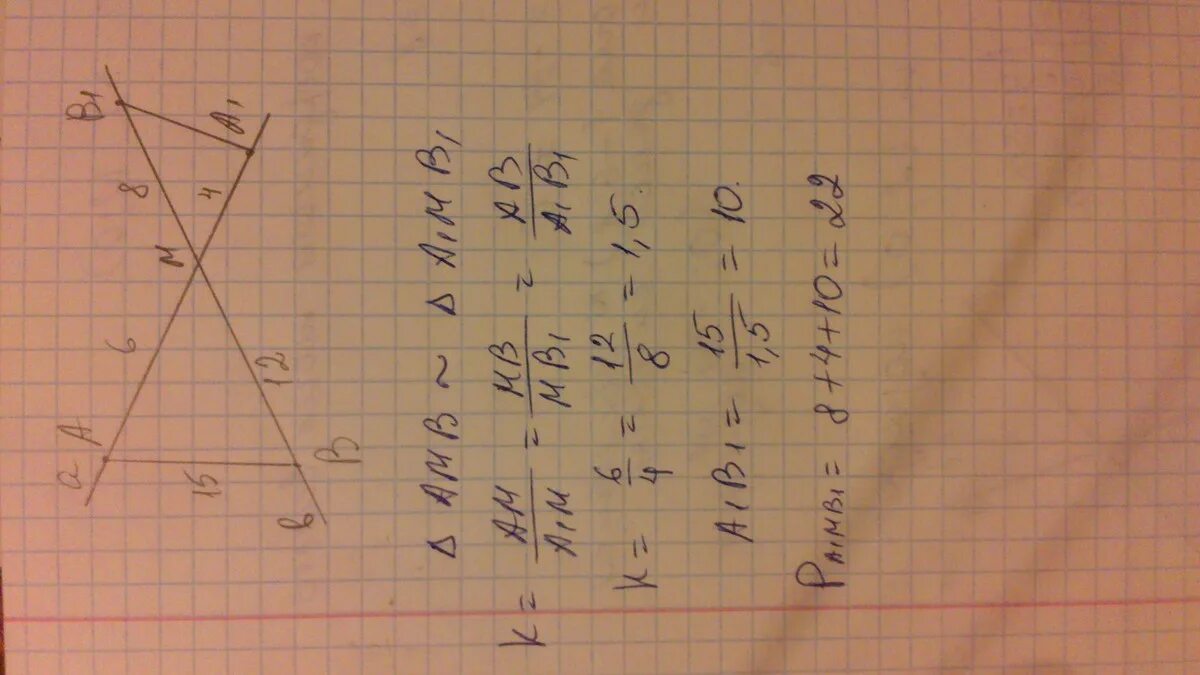 a A 6 M 8 B₁
15 4 A₁
в B 12
Δ AMB ~ Δ A₁MB₁
K = AM/A₁M = MB/MB₁ = AB/A₁B₁
K = 6/4 = 12/8 = 1,5.
A₁B₁ = 15/1,5 = 10.
P A₁MB₁ = 8+4+10=22